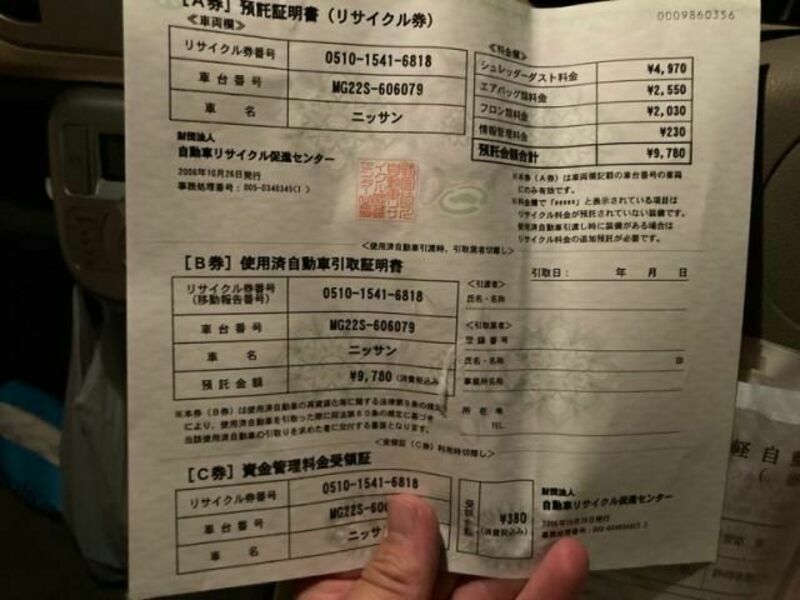 0009860356
[A券] 預託証明書(リサイクル券)
≪車両欄≫
リサイクル券番号 0510-1541-6818
車台番号 MG22S-606079
車名 ニッサン
≪料金欄≫
シュレッダーダスト料金 ¥4,970
エアバッグ類料金 ¥2,550
フロン類料金 ¥2,030
情報管理料金 ¥230
預託金額合計 ¥9,780
財団法人
自動車リサイクル促進センター
2006年10月26日発行
事務処理番号:005-0346345(1 )
※本券(A券)は車両欄記載の車台番号の車両
にのみ有効です。
※料金欄で「*****」と表示されている項目は
リサイクル料金が預託されていない装備です。
使用済自動車引渡し時に装備がある場合は
リサイクル料金の追加預託が必要です。
<使用済自動車引渡時、引取業者切離し>
[B券] 使用済自動車引取証明書
引取日: 年 月 日
リサイクル券番号
(移動報告番号) 0510-1541-6818
車台番号 MG22S-606079
車名 ニッサン
預託金額 ¥9,780 (消費税込み)
<引渡者>
氏名・名称
<引取業者>
登録番号
氏名・名称 印
事業所名称
所在地
TEL.
※本券(B券)は使用済自動車の再資源化等に関する法律第9条の規定
により、使用済自動車を引取った際に同法第80条の規定に基づき
当該使用済自動車の引取りを求めた者に交付する書面となります。
<受領証(C券)利用時切離し>
[C券] 資金管理料金受領証
リサイクル券番号 0510-1541-6818
車台番号 MG22S-60
車名 ニッサ
¥380
(消費税込み)
財団法人
自動車リサイクル促進センター
2006年10月26日発行
事務処理番号:005-0346345(1 )
軽自動